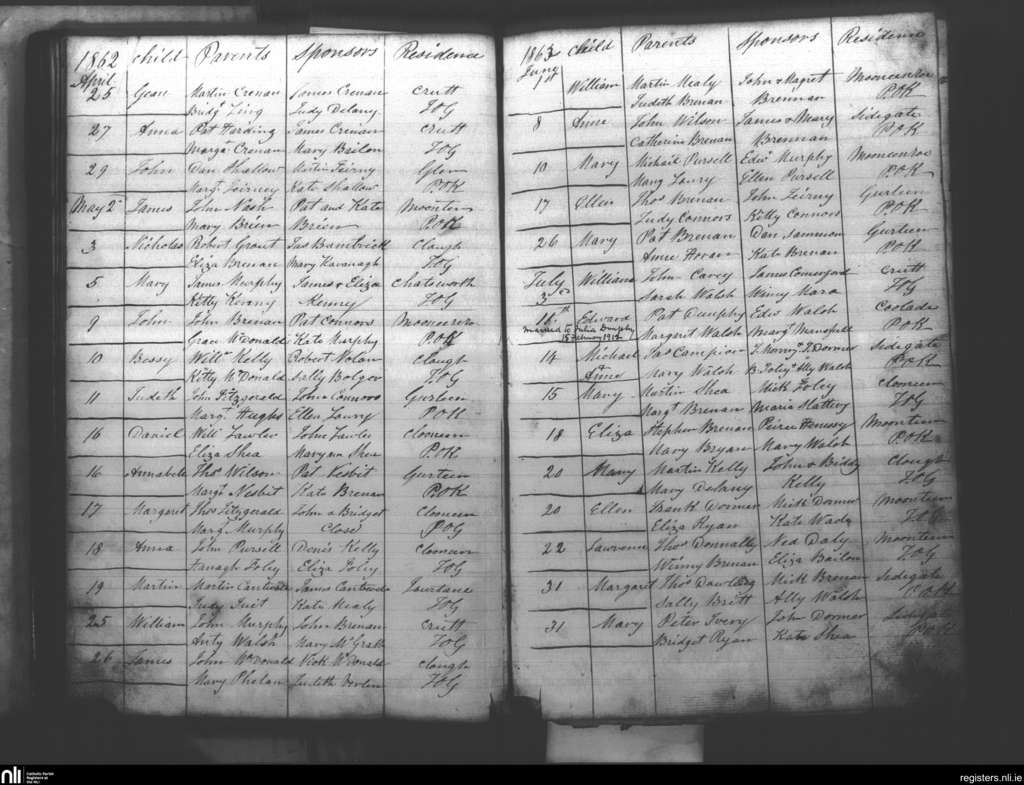 1862 child Parents Sponsors Residence
April
25 Gean Martin Crenan James Crenan Crutt
Bridgt Ling Judy Delany JOG
27 Anna Pat Harding James Crenan Crutt
Margt Crenan Mary Bailon JOG
29 John Dan Shallow Martin Feirny
Margt Feirney Kate Shallow POK
May 2d James John Nash Pat and Kate Moonteen
Mary Brien Brien POK
3 Nicholas Robert Grant Jas Bambrick Clough
Eliza Brenan Mary Kavanagh JOG
5 Mary James Murphy James & Eliza Chatsworth
Kitty Kenny Kenny JOG
9 John John Brenan Pat Connors Mooneenroe
Grace McDonald Kate Murphy POK
10 Bessy Willm Kelly Robert Nolan Clough
Kitty McDonald Sally Bolger JOG
11 Judith John Fitzgerald John Connors Gurteen
Margt Hughs Ellen Lowry POK
16 Daniel Will Lawler John Lawler Cloneen
Eliza Shea Maryann Shea POK
16 Annabella Thos Wilson Pat Nesbit Gurteen
Margt Nesbit Kate Brenan POK
17 Margaret Thos Fitzgerald John & Bridget Cloneen
Margt Murphy Close JOG
18 Anna John Pursell Denis Kelly Cloneen
Hanagh Foley Eliza Foley JOG
19 Martin Martin Cantwell James Cantwell
Judy Kate Healy JOG
25 William John Murphy John Brenan Crutt
Anty Walsh Mary McGrath JOG
26 James John McDonald Nick McDonald Clough
Mary Phelan Judith JOG
1862 child Parents Sponsors Residence
June
1st William Martin Healy John & Magret Mooneenroe
Judith Brenan Brennan POK
8 Anne John Wilson James & Mary Sidegate
Catherine Brenan Brennan POK
10 Mary Michail Pursell Edwd Murphy Mooneenroe
Mary Lowry Ellen Pursell POK
17 Ellen Thos Brenan John Feirny Gurteen
Judy Connors Kitty Connors POK
26 Mary Pat Brenan Dan Gurteen
Anne Horan Kate Brenan POK
July William John Carey James Comerford Crutt
3d Sarah Walsh Winny Mara JOG
11th Edward Pat Dunphy Edwd Walsh Coolade
married to Julia Dunphy Margaret Walsh Margt Mansfield POK
14 Michael Jas Campion Sidegate
& Anne Mary Walsh Ally Walsh POK
15 Mary Martin Shea Mick Foley Cloneen
Margt Brenan Maria Slattery JOG
18 Eliza Stephen Brenan Peirce Henesy Moonteen
Mary Bryan Mary Walsh POK
20 Mary Martin Kelly John & Biddy Clough
Mary Delany Kelly JOG
20 Ellen Frank Dormer Mick Dormer Moonteen
Eliza Ryan Kate Wade JOG
22 Lawrence Thos Donnally Ned Daly Moonteen
Winny Brenan Eliza Bailon JOG
31 Margaret Thos Dowling Mick Brenan Sidegate
Sally Britt Ally Walsh POK
31 Mary Peter Ivory John Dormer
Bridget Ryan Kate Shea
nli Catholic Parish
Registers at
the NLI
registers.nli.ie